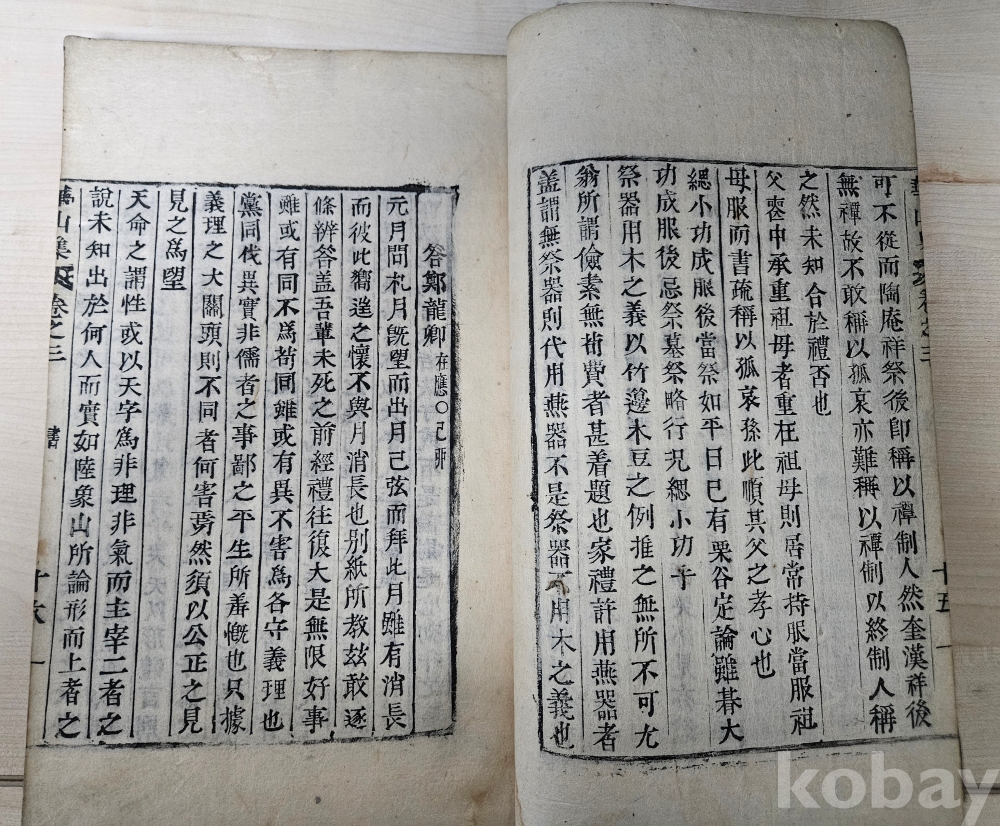 華山集 卷之三 十五
可不從而陶庵祥祭後卽稱以禫制人然奎漢祥後
無禫故不敢稱以孤哀亦難稱以禫制以終制人稱
之然未知合於禮否也
父喪中承重祖母者重在祖母則居常持服當服祖
母服而書疏稱以孤哀孫此順其父之孝心也
緦小功成服後當祭如平日已有栗谷定論雖朞大
功成服後忌祭墓祭略行况緦小功乎
祭器用木之義以竹籩木豆之例推之無所不可尤
翁所謂儉素無費者甚着題也家禮許用燕器者
盖謂無祭器則代用燕器不是祭器不用木之義也
答鄭龍卿在應○己卯
元月問札月旣望而出月已弦而拜此月雖有消長
而彼此嚮之懷不與月消長也别紙所教玆敢逐
條辨答盖吾輩未死之前經禮往復大是無限好事
雖或有同不爲苟同雖或有異不害爲各守義理也
黨同伐異實非儒者之事鄙之平生所羞慨也只據
義理之大關頭則不同者何害焉然須以公正之見
見之爲望
天命之謂性或以天字爲非理非氣而主宰二者之
說未知出於何人而實如陸象山所論形而上者之
華山集 卷之三 書 十六
kobay